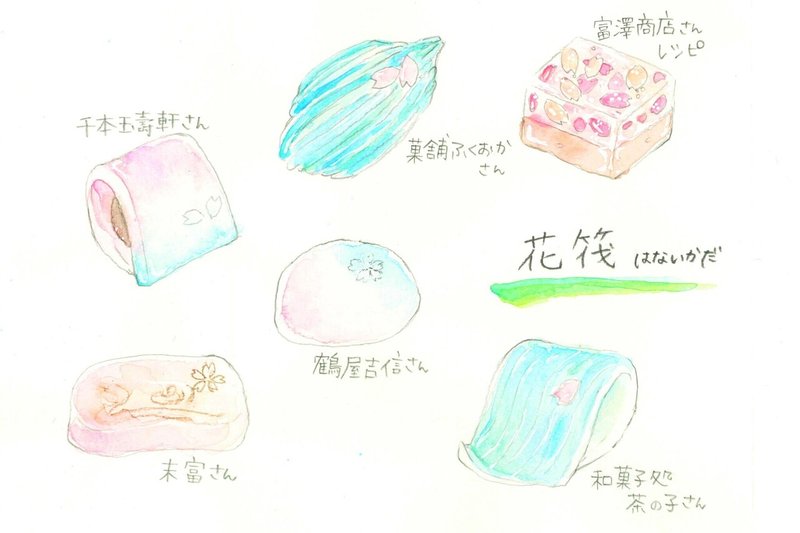 富澤商店さん
レシピ
千本玉壽軒さん
菓舗ふくおか
さん
花筏 はないかだ
鶴屋吉信さん
末富さん
和菓子処
茶の子さん